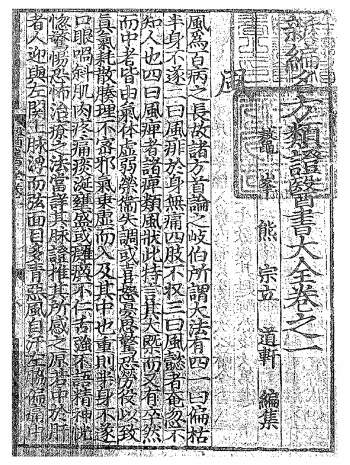 新編名方類證醫書大全卷之一
鰲峯 熊宗立 道軒 編集
風
風為百病之長故諸方首論之岐伯所謂大法有四一曰偏枯
半身不遂二曰風痱於身無痛四肢不收三曰風懿者奄忽不
知人也四曰風痺者諸痺類風狀此特言其大槩而又有卒然
而中者皆由氣体虛弱榮衛失調或喜怒憂思驚恐勞役以致
真氣耗散腠理不密邪氣乘虛而入及其中也重則半身不遂
口眼喎斜肌肉疼痛痰涎壅盛或癱瘓不仁舌強不語精神恍
惚驚惕恐怖治療之法當詳其脉證推其所感之原若中於肝
者人迎與左関上脉浮而弦面目多青惡風自汗左脇偏痛